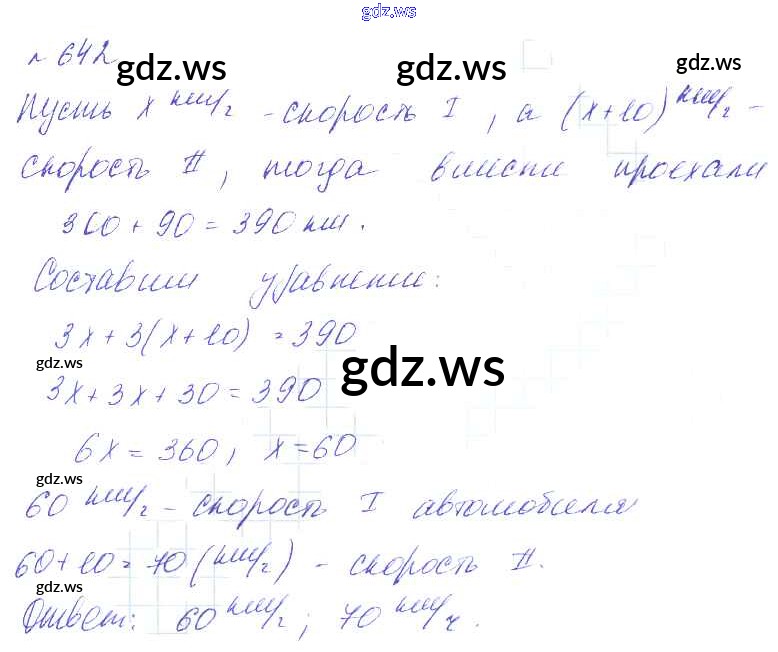 gdz.ws
№ 642
gdz.ws gdz.ws gdz.ws
Пусть x км/ч - скорость I, а (x+10) км/ч -
скорость II, тогда вместе проехали
360 + 90 = 390 км.
Составим уравнение:
3x + 3(x+10) = 390
gdz.ws gdz.ws
3x + 3x + 30 = 390
6x = 360, x = 60
gdz.ws
60 км/ч - скорость I автомобиля
60 + 10 = 70 (км/ч) - скорость II.
gdz.ws
Ответ: 60 км/ч; 70 км/ч.